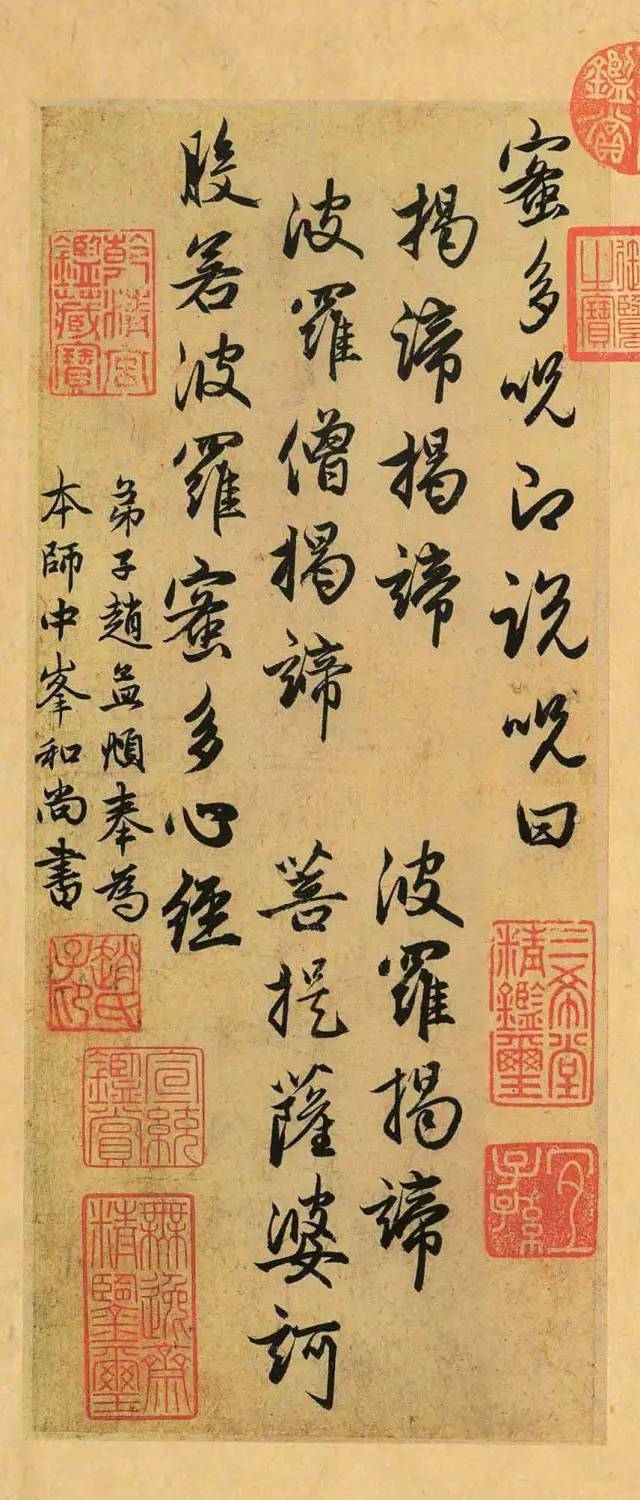 蜜多呪即說呪曰
揭諦揭諦 波羅揭諦
波羅僧揭諦 菩提薩婆訶
般若波羅蜜多心經
弟子趙孟頫奉為
本師中峯和尚書
鑑賞
三希堂精鑑璽
宜子孫
乾清宮鑑藏寶
趙氏子印
宣統鑑賞
無逸齋精鑒璽